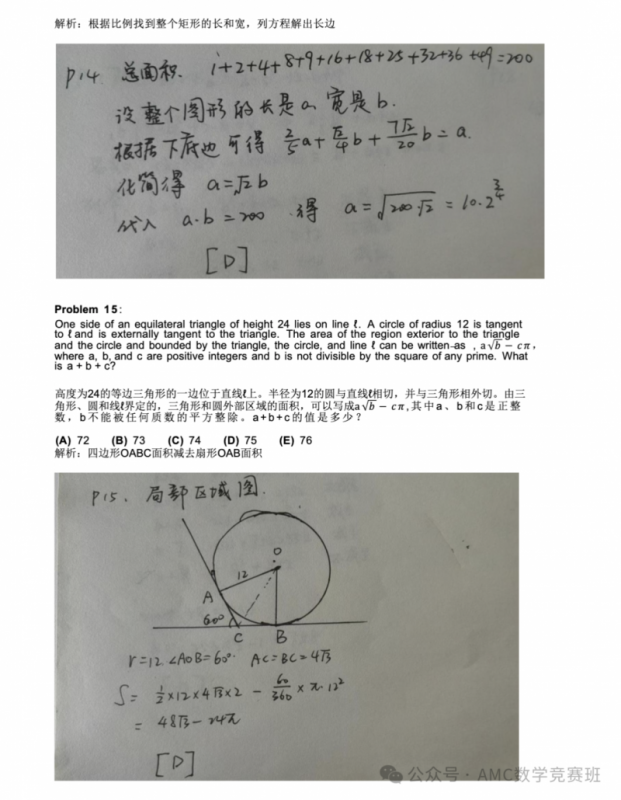 解析：根据比例找到整个矩形的长和宽，列方程解出长边
P14. 总面积. 1+2+4+8+9+16+18+25+32+36+49=200
设整个图形的长是a, 宽是b.
根据下底边可得 2/5 a + √2/4 b + 7√2/20 b = a.
化简得 a=√2 b
代入 a·b=200 得 a=√(200√2) = 10·2^(3/4)
[D]
Problem 15:
One side of an equilateral triangle of height 24 lies on line ℓ. A circle of radius 12 is tangent
to ℓ and is externally tangent to the triangle. The area of the region exterior to the triangle
and the circle and bounded by the triangle, the circle, and line ℓ can be written as , a√b − cπ,
where a, b, and c are positive integers and b is not divisible by the square of any prime. What
is a + b + c?
高度为24的等边三角形的一边位于直线ℓ上。半径为12的圆与直线ℓ相切，并与三角形相外切。由三
角形、圆和线ℓ界定的，三角形和圆外部区域的面积，可以写成a√b − cπ,其中a、b和c是正整
数，b不能被任何质数的平方整除。a+b+c的值是多少？
(A) 72 (B) 73 (C) 74 (D) 75 (E) 76
解析：四边形OABC面积减去扇形OAB面积
P15. 局部区域图.
O
12
A
60°
C B
r=12. ∠AOB=60° AC=BC=4√3
S= 1/2×12×4√3×2 − 60/360×π·12²
= 48√3−24π
[D]
公众号·AMC数学竞赛班